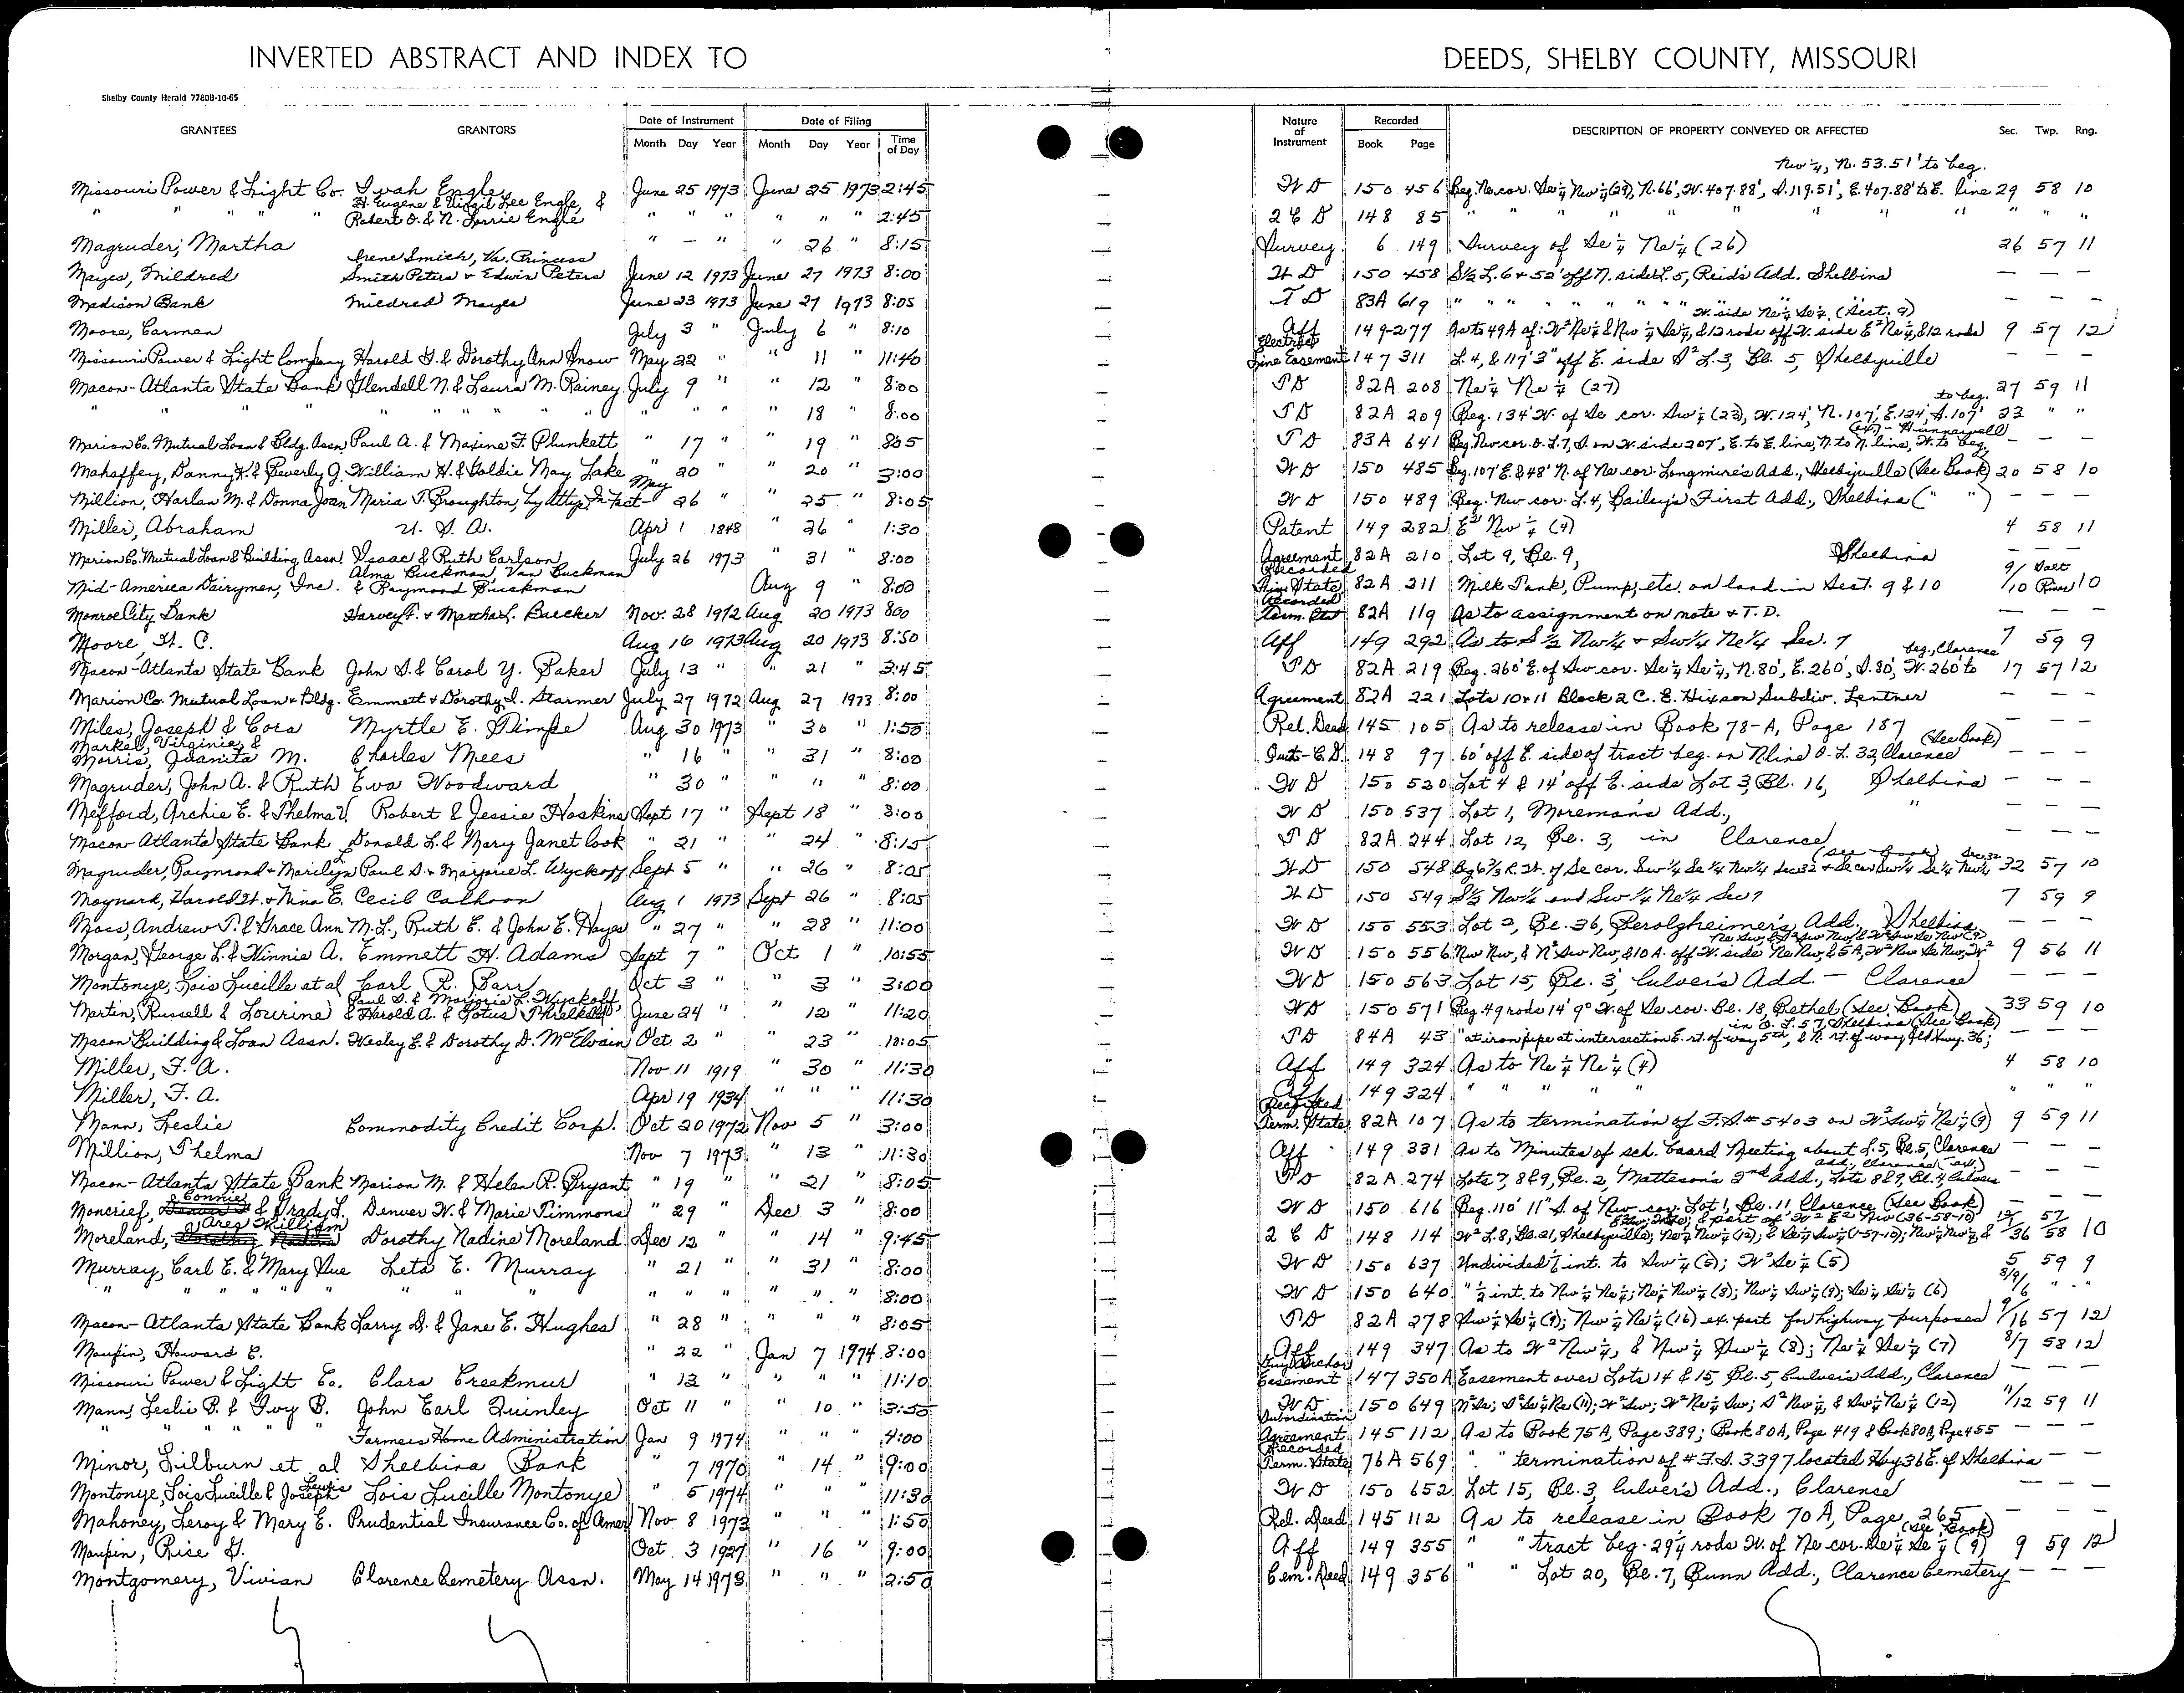 INVERTED ABSTRACT AND INDEX TO DEEDS, SHELBY COUNTY, MISSOURI
Shelby County Herald 7780B-10-65
GRANTEES GRANTORS Date of Instrument Date of Filing Nature of Instrument Recorded DESCRIPTION OF PROPERTY CONVEYED OR AFFECTED Sec. Twp. Rng.
Month Day Year Month Day Year Time of Day Book Page
Nw ¼, N. 53.51' to beg.
Missouri Power & Light Co. Ivah Engle June 25 1973 June 25 1973 2:45 W D 150 456 Beg. Ne. cor. Se ¼ Nw ¼ (29), N. 66', W. 407.88', S. 119.51', E. 407.88' to E. line 29 58 10
H. Eugene & Virgil Lee Engle, &
" " " " Robert O. & N. Lorrie Engle " " " " " " 2:45 2 C D 148 85 " " " " " " " " " " "
Magruder, Martha " — " " 26 " 8:15 Survey 6 149 Survey of Se ¼ Ne ¼ (26) 26 57 11
Irene Smith, Va. Princess
Mayes, Mildred Smith Peters & Edwin Peters June 12 1973 June 27 1973 8:00 W D 150 458 S½ L. 6 & 52' off N. side L. 5, Reid's Add. Shelbina — — —
Madison Bank Mildred Mayes June 23 1973 June 27 1973 8:05 T D 83A 619 " " " " " " " " " — — —
W. side Ne ¼ Se ¼, (Sect. 9)
Moore, Carmen July 3 " July 6 " 8:10 Aff 149-277 As to 49A of: W² Ne ¼ & Nw ¼ Se ¼, & 12 rods off W. side E² Ne ¼, & 12 rods 9 57 12
Missouri Power & Light Company Harold G. & Dorothy Ann Snow May 22 " " 11 " 11:40 Electric Line Easement 147 311 L. 4, & 117' 3" off E. side S² L. 3, Bl. 5, Shelbyville — — —
Macon-Atlanta State Bank Glendell N. & Laura M. Rainey July 9 " " 12 " 8:00 T D 82A 208 Ne ¼ Ne ¼ (27) 27 59 11
to beg.
" " " " " " " " " " " " " 18 " 8:00 T D 82A 209 Beg. 134' W. of Se cor. Sw ¼ (23), W. 124', N. 107', E. 124', S. 107' 23 " "
(ex) - Hunnewell
Marion Co. Mutual Loan & Bldg. Assn. Paul A. & Maxine F. Plunkett " 17 " " 19 " 8:05 T D 83A 641 Beg. Nw. cor. O. L. 7, S. on W. side 207', E. to E. line, N. to N. line, W. to beg. — — —
Mahaffey, Danny K. & Beverly J. William H. & Goldie May Lake " 20 " 20 " 3:00 W D 150 485 Beg. 107' E. & 48' N. of Ne cor. Longmire's Add., Shelbyville (See Book) 20 58 10
Million, Harlan M. & Donna Joan Maria T. Broughton, by Atty. In Fact May 26 " " 25 " 8:05 W D 150 489 Beg. Nw cor. L. 4, Bailey's First Add., Shelbina ( " " ) — — —
Miller, Abraham U. S. A. Apr 1 1848 " 26 " 1:30 Patent 149 282 E² Nw ¼ (4) 4 58 11
Marion Co. Mutual Loan & Building Assn. Isaac & Ruth Carlson July 26 1973 " 31 " 8:00 Agreement 82A 210 Lot 9, Bl. 9, Shelbina — — —
Alma Buckman, Van Buckman
Mid-America Dairymen, Inc. & Raymond Buckman Aug 9 " 8:00 Recorded Fin. State. 82A 211 Milk Tank, Pump, etc. on land in Sect. 9 & 10 9/10 Salt River 10
Monroe City Bank Harvey F. & Martha L. Baecker Nov. 28 1972 Aug 20 1973 8:00 Recorded Term. Stat 82A 119 As to assignment on note & T. D. — — —
Moore, W. C. Aug 16 1973 Aug 20 1973 8:50 Aff 149 292 As to S ½ Nw¼ & Sw¼ Ne¼ Sec. 7 7 59 9
beg. Clarence
Macon-Atlanta State Bank John S. & Carol Y. Baker July 13 " " 21 " 3:45 T D 82A 219 Beg. 260' E. of Sw cor. Se ¼ Se ¼, N. 80', E. 260', S. 80', W. 260' to 17 57 12
Marion Co. Mutual Loan & Bldg. Emmett & Dorothy I. Starmer July 27 1972 Aug 27 1973 8:00 Agreement 82A 221 Lots 10 & 11 Block 2 C. E. Hixson Subdiv. Lentner — — —
Miles, Joseph & Cora Myrtle E. Stimpe Aug 30 1973 " 30 " 1:55 Rel. Deed 145 105 As to release in Book 78-A, Page 187 — — —
Markel, Virginia &
(See Book)
Morris, Juanita M. Charles Mees " 16 " " 31 " 8:00 Quit-C.D. 148 97 60' off E. side of tract beg. on N line O. L. 32, Clarence — — —
Magruder, John A. & Ruth Eva Woodward " 30 " " " " 8:00 W D 150 520 Lot 4 & 14' off E. side Lot 3, Bl. 16, Shelbina — — —
Mefford, Archie E. & Thelma V. Robert & Jessie Hoskins Sept 17 " Sept 18 " 3:00 W D 150 537 Lot 1, Moreman's Add., " — — —
Macon-Atlanta State Bank Donald L. & Mary Janet Cook " 21 " " 24 " 8:15 T D 82A 244 Lot 12, Bl. 3, in Clarence — — —
(See Book) Sec. 32
Magruder, Raymond & Marilyn Paul D. & Marjorie L. Wyckoff Sept 5 " " 26 " 8:05 W D 150 548 Beg 6⅔ R. W. of Se cor. Sw¼ Se¼ Nw¼ Sec 32 & Se cor Sw¼ Se¼ Nw¼ 32 57 10
Maynard, Harold W. & Nina E. Cecil Calhoon Aug 1 1973 Sept 26 " 8:05 W D 150 549 S½ Nw¼ and Sw¼ Ne¼ Sec 7 7 59 9
Moss, Andrew T. & Grace Ann M. L., Ruth E. & John E. Hayes " 27 " " 28 " 11:00 W D 150 553 Lot 2, Bl. 36, Perolgheimer's Add., Shelbina — — —
Morgan, George L. & Winnie A. Emmett H. Adams Sept 7 " Oct 1 " 10:55 W D 150 556 Nw Nw, & N² Sw Nw, & 10 A. off W. side Ne Nw, & 5 A, W² Nw Se Nw, W² 9 56 11
Montonye, Lois Lucille et al Carl R. Barr Oct 3 " " 3 " 3:00 W D 150 563 Lot 15, Bl. 3, Culver's Add. — Clarence — — —
Paul D. & Marjorie L. Wyckoff
Martin, Russell & Lourine & Harold A. & Lotus Threlkeld June 24 " " 12 " 11:20 W D 150 571 Beg. 49 rods 14' 9" W. of Se cor. Bl. 18, Bethel (See Book) 33 59 10
in O. L. 57, Shelbina (See Book)
Macon Building & Loan Assn. Wesley E. & Dorothy D. McElvain Oct 2 " " 23 " 10:05 T D 84A 43 "at iron pipe at intersection E. rt. of way 5th, & N. rt. of way Old Hwy. 36; — — —
Miller, F. A. Nov 11 1919 " 30 " 11:30 Aff 149 324 As to Ne ¼ Ne ¼ (4) 4 58 10
Miller, F. A. Apr 19 1934 " " " 11:30 Aff 149 324 " " " " " " " "
Mann, Leslie Commodity Credit Corp. Oct 20 1972 Nov 5 " 3:00 Recorded Term. State. 82A 107 As to termination of F. S # 5403 on W² Sw ¼ Ne ¼ (9) 9 59 11
Million, Thelma Nov 7 1973 " 13 " 11:30 Aff 149 331 As to Minutes of sch. board Meeting about L. 5, Bl. 5, Clarence — — —
Add., Clarence (ex)
Macon-Atlanta State Bank Marion M. & Helen R. Bryant " 19 " " 21 " 8:05 T D 82A 274 Lots 7, 8 & 9, Bl. 2, Matteson's 2nd Add., Lots 8 & 9, Bl. 4, Culvers — — —
Connie
Moncrief, & Grady L. Denver W. & Marie Timmons " 29 " Dec 3 " 8:00 W D 150 616 Beg. 110' 11" S. of Nw cor. Lot 1, Bl. 11, Clarence (See Book) — — —
Greg William
Moreland, Dorothy Nadine Moreland Dec 12 " " 14 " 9:45 2 C D 148 114 W² L. 8, Bl. 21, Shelbyville; Ne ¼ Nw ¼ (12); & Se ¼ Sw ¼ (1-57-10); Nw ¼ Nw ¼ & 36 58 10
Murray, Carl E. & Mary Sue Leta E. Murray " 21 " " 31 " 8:00 W D 150 637 Undivided ½ int. to Sw ¼ (5); W² Se ¼ (5) 5 59 9
" " " " " " " " " " " " " 8:00 W D 150 640 " ½ int. to Nw ¼ Ne ¼; Ne ¼ Nw ¼ (8); Nw ¼ Sw ¼ (9); Se ¼ Se ¼ (6) 8/9/6 " "
Macon-Atlanta State Bank Larry D. & Jane E. Hughes " 28 " " " " 8:05 T D 82A 278 Sw ¼ Se ¼ (9); Nw ¼ Ne ¼ (16) ex. part for highway purposes 9/16 57 12
Maupin, Howard C. " 22 " Jan 7 1974 8:00 Aff 149 347 As to W² Nw ¼, & Nw ¼ Sw ¼ (8); Ne ¼ Se ¼ (7) 8/7 58 12
Missouri Power & Light Co. Clara Creekmur " 13 " " " " 11:10 Guy Anchor Easement 147 350 A Easement over Lots 14 & 15, Bl. 5, Culver's Add., Clarence — — —
Mann, Leslie B. & Ivy B. John Earl Quinley Oct 11 " " 10 " 3:55 W D 150 649 N² Se; S² Se ¼ Ne (11); W² Sw; W² Ne ¼ Sw; S² Nw ¼, & Sw ¼ Ne ¼ (12) 11/12 59 11
" " " " Farmers Home Administration Jan 9 1974 " " " 4:00 Subordination Agreement 145 112 As to Book 75A, Page 389; Book 80A, Page 419 & Book 80A, Page 455
Minor, Lilburn et al Shelbina Bank " 7 1970 " 14 " 9:00 Recorded Term. State 76A 569 " " termination of # F. S. 3397 located Hwy 36 E. of Shelbina — —
Lewis
Montonye, Lois Lucille & Joseph Lois Lucille Montonye " 5 1974 " " " 11:30 W D 150 652 Lot 15, Bl. 3, Culver's Add., Clarence — — —
Mahoney, Leroy & Mary E. Prudential Insurance Co. of Amer Nov 8 1973 " " " 1:50 Rel. Deed 145 112 As to release in Book 70 A, Page 265 — — —
(See Book)
Maupin, Rice G. Oct. 3 1927 " 16 " 9:00 Aff 149 355 " " tract beg. 29¼ rods W. of Ne cor. Se ¼ Se ¼ (9) 9 59 12
Montgomery, Vivian Clarence Cemetery Assn. May 14 1973 " " " 2:50 Cem. Deed 149 356 " " Lot 20, Bl. 7, Bunn Add., Clarence Cemetery — — —